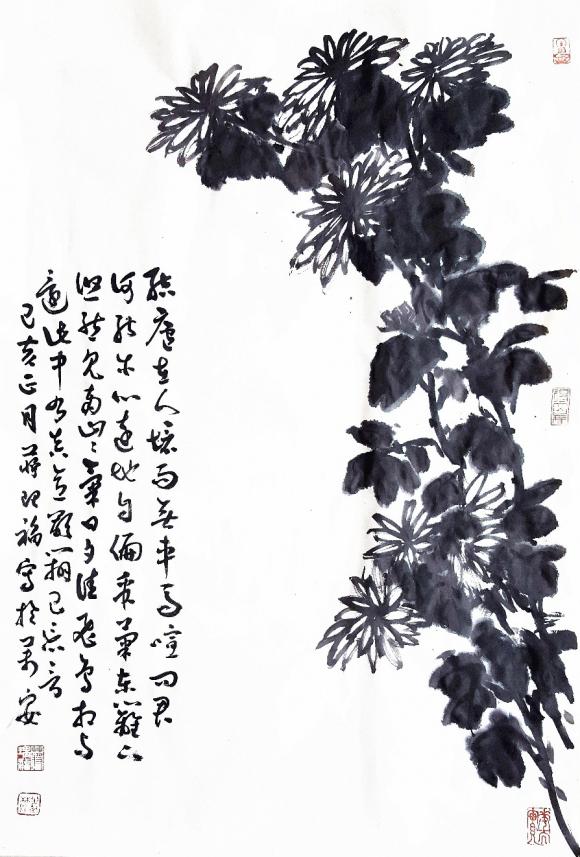 結廬在人境而無車馬喧問君
何能尔心遠地自偏采菊東籬下
悠然見南山々氣日夕佳飛鳥相與
還此中有真意欲辨已忘言
己亥正月蔣福寫於萬安